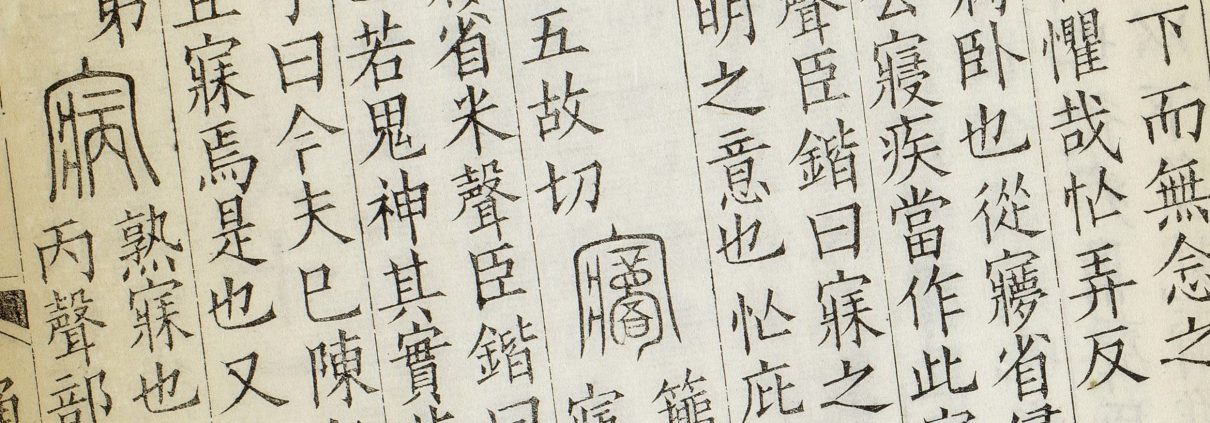 下而無念之
懼哉忙弄反
將卧也從㝱省
云寢疾當作此
聲臣鍇曰寐之
明之意也忙庇
五故切
寐
省米聲臣鍇曰
若鬼神其實
曰今夫巳陳
且寐焉是也又
弟㝥熟寐也
丙聲部